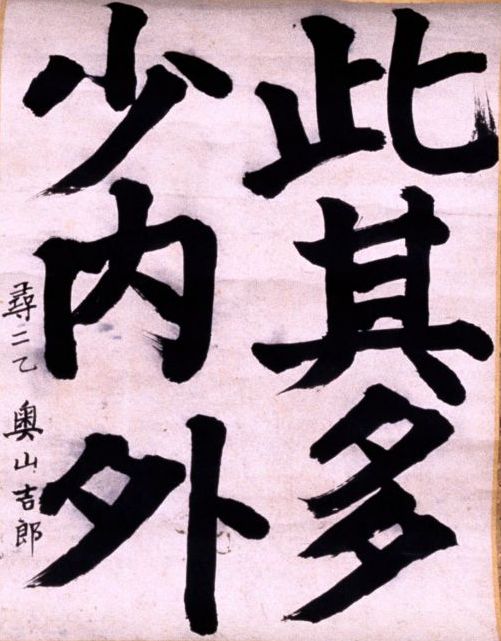 此其多
少内外
尋二乙 奥山吉郎